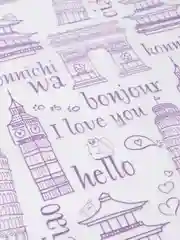 konnichi
wa
bonjour
I love you
hello
ciao